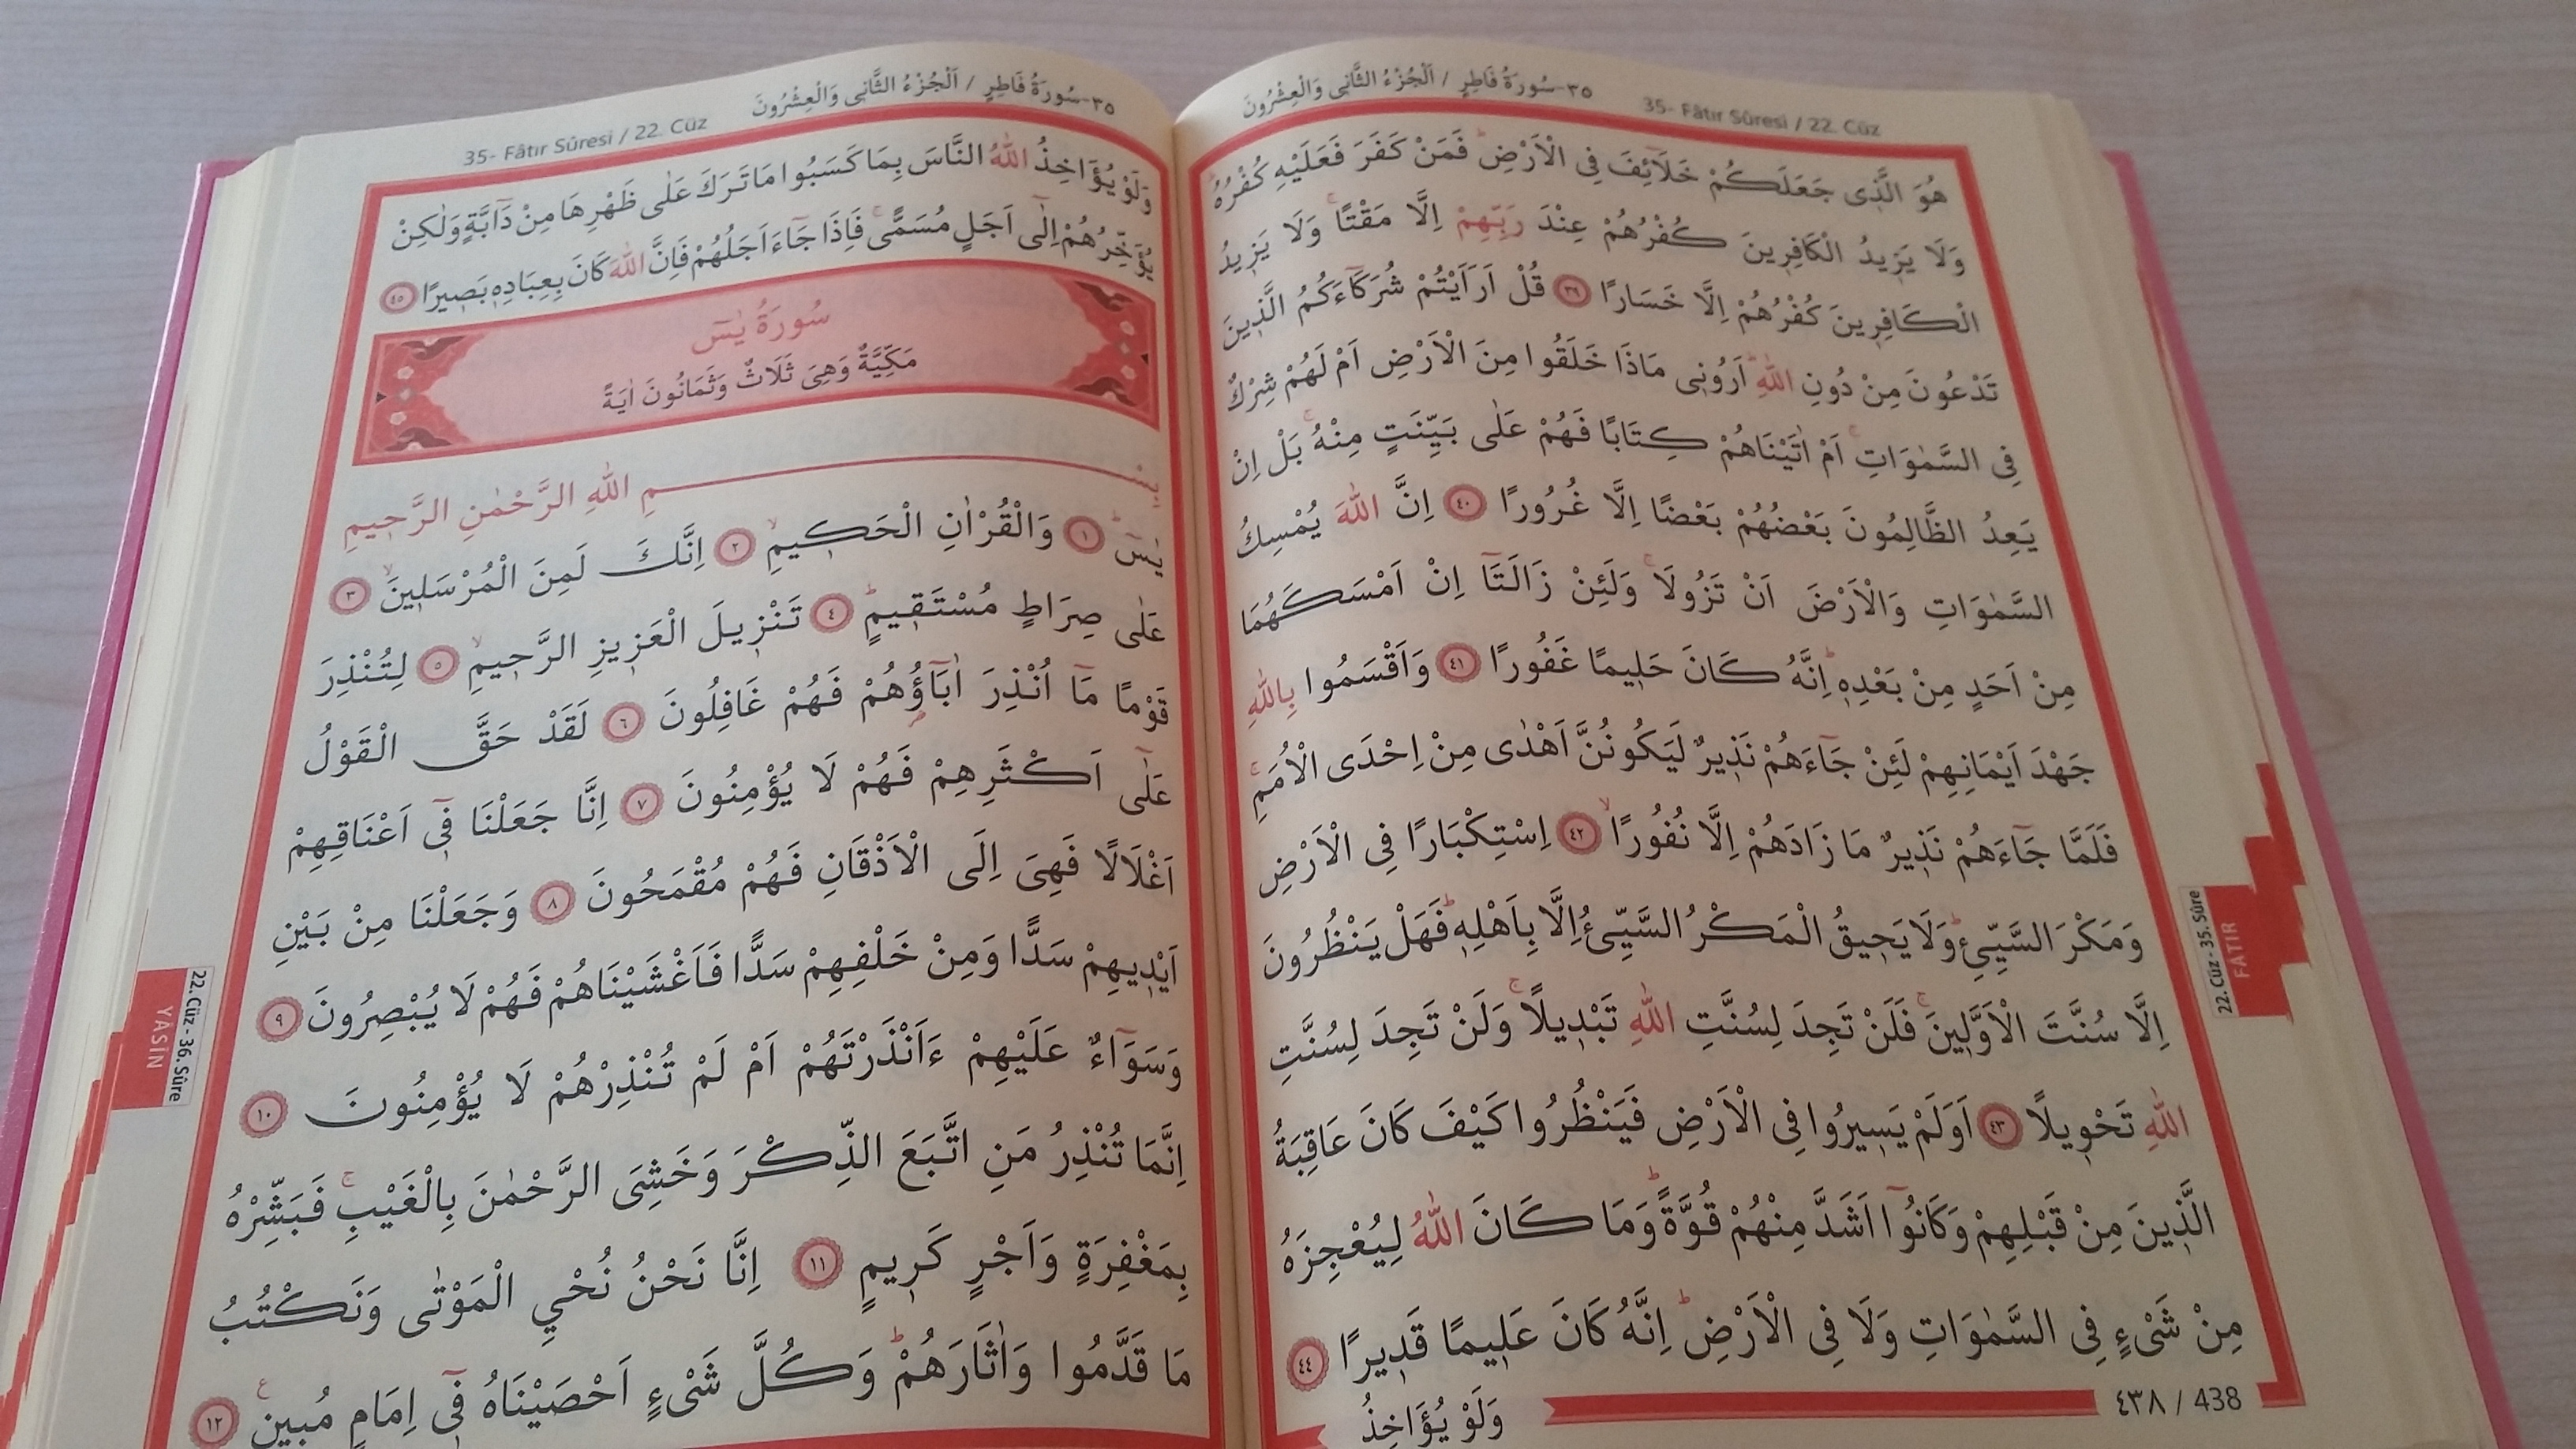 ٣٥-سُورَةُ فَاطِرٍ / اَلْجُزْءُ الثَّانِى وَالْعِشْرُونَ
35- Fâtır Sûresi / 22. Cüz
هُوَ الَّذ۪ى جَعَلَكُمْ خَلَٓائِفَ فِى الْاَرْضِۜ فَمَنْ كَفَرَ فَعَلَيْهِ كُفْرُهُۜ
وَلَا يَز۪يدُ الْكَافِر۪ينَ كُفْرُهُمْ عِنْدَ رَبِّهِمْ اِلَّا مَقْتًاۚ وَلَا يَز۪يدُ
الْكَافِر۪ينَ كُفْرُهُمْ اِلَّا خَسَارًا ٣٩ قُلْ اَرَاَيْتُمْ شُرَكَٓاءَكُمُ الَّذ۪ينَ
تَدْعُونَ مِنْ دُونِ اللّٰهِۜ اَرُون۪ى مَاذَا خَلَقُوا مِنَ الْاَرْضِ اَمْ لَهُمْ شِرْكٌ
فِى السَّمٰوَاتِۚ اَمْ اٰتَيْنَاهُمْ كِتَابًا فَهُمْ عَلٰى بَيِّنَتٍ مِنْهُۚ بَلْ اِنْ
يَعِدُ الظَّالِمُونَ بَعْضُهُمْ بَعْضًا اِلَّا غُرُورًا ٤٠ اِنَّ اللّٰهَ يُمْسِكُ
السَّمٰوَاتِ وَالْاَرْضَ اَنْ تَزُولَاۚ وَلَئِنْ زَالَتَٓا اِنْ اَمْسَكَهُمَا
مِنْ اَحَدٍ مِنْ بَعْدِه۪ۜ اِنَّهُ كَانَ حَل۪يمًا غَفُورًا ٤١ وَاَقْسَمُوا بِاللّٰهِ
جَهْدَ اَيْمَانِهِمْ لَئِنْ جَٓاءَهُمْ نَذ۪يرٌ لَيَكُونُنَّ اَهْدٰى مِنْ اِحْدَى الْاُمَمِۚ
فَلَمَّا جَٓاءَهُمْ نَذ۪يرٌ مَا زَادَهُمْ اِلَّا نُفُورًاۙ ٤٢ اِسْتِكْبَارًا فِى الْاَرْضِ
وَمَكْرَ السَّيِّئِۜ وَلَا يَح۪يقُ الْمَكْرُ السَّيِّئُ اِلَّا بِاَهْلِه۪ۜ فَهَلْ يَنْظُرُونَ
اِلَّا سُنَّتَ الْاَوَّل۪ينَۚ فَلَنْ تَجِدَ لِسُنَّتِ اللّٰهِ تَبْد۪يلًاۚ وَلَنْ تَجِدَ لِسُنَّتِ
اللّٰهِ تَحْو۪يلًا ٤٣ اَوَلَمْ يَس۪يرُوا فِى الْاَرْضِ فَيَنْظُرُوا كَيْفَ كَانَ عَاقِبَةُ
الَّذ۪ينَ مِنْ قَبْلِهِمْ وَكَانُٓوا اَشَدَّ مِنْهُمْ قُوَّةًۜ وَمَا كَانَ اللّٰهُ لِيُعْجِزَهُ
مِنْ شَىْءٍ فِى السَّمٰوَاتِ وَلَا فِى الْاَرْضِۜ اِنَّهُ كَانَ عَل۪يمًا قَد۪يرًا ٤٤
وَلَوْ يُؤَاخِذُ
٤٣٨ / 438
22. Cüz - 35. Sûre
FÂTIR
٣٥-سُورَةُ فَاطِرٍ / اَلْجُزْءُ الثَّانِى وَالْعِشْرُونَ
35- Fâtır Sûresi / 22. Cüz
وَلَوْ يُؤَاخِذُ اللّٰهُ النَّاسَ بِمَا كَسَبُوا مَا تَرَكَ عَلٰى ظَهْرِهَا مِنْ دَٓابَّةٍ وَلٰكِنْ
يُؤَخِّرُهُمْ اِلٰٓى اَجَلٍ مُسَمًّىۚ فَاِذَا جَٓاءَ اَجَلُهُمْ فَاِنَّ اللّٰهَ كَانَ بِعِبَادِه۪ بَص۪يرًا ٤٥
سُورَةُ يٰسٓ
مَكِّيَّةٌ وَهِىَ ثَلَاثٌ وَثَمَانُونَ اٰيَةً
بِسْمِ اللّٰهِ الرَّحْمٰنِ الرَّح۪يمِ
يٰسٓۜ ١ وَالْقُرْاٰنِ الْحَك۪يمِۙ ٢ اِنَّكَ لَمِنَ الْمُرْسَل۪ينَۙ ٣
عَلٰى صِرَاطٍ مُسْتَق۪يمٍۜ ٤ تَنْز۪يلَ الْعَز۪يزِ الرَّح۪يمِۙ ٥ لِتُنْذِرَ
قَوْمًا مَٓا اُنْذِرَ اٰبَٓاؤُهُمْ فَهُمْ غَافِلُونَ ٦ لَقَدْ حَقَّ الْقَوْلُ
عَلٰٓى اَكْثَرِهِمْ فَهُمْ لَا يُؤْمِنُونَ ٧ اِنَّا جَعَلْنَا ف۪ٓى اَعْنَاقِهِمْ
اَغْلَالًا فَهِىَ اِلَى الْاَذْقَانِ فَهُمْ مُقْمَحُونَ ٨ وَجَعَلْنَا مِنْ بَيْنِ
اَيْد۪يهِمْ سَدًّا وَمِنْ خَلْفِهِمْ سَدًّا فَاَغْشَيْنَاهُمْ فَهُمْ لَا يُبْصِرُونَ ٩
وَسَوَٓاءٌ عَلَيْهِمْ ءَاَنْذَرْتَهُمْ اَمْ لَمْ تُنْذِرْهُمْ لَا يُؤْمِنُونَ ١٠
اِنَّمَا تُنْذِرُ مَنِ اتَّبَعَ الذِّكْرَ وَخَشِىَ الرَّحْمٰنَ بِالْغَيْبِۚ فَبَشِّرْهُ
بِمَغْفِرَةٍ وَاَجْرٍ كَر۪يمٍ ١١ اِنَّا نَحْنُ نُحْيِ الْمَوْتٰى وَنَكْتُبُ
مَا قَدَّمُوا وَاٰثَارَهُمْۜ وَكُلَّ شَىْءٍ اَحْصَيْنَاهُ ف۪ٓى اِمَامٍ مُب۪ينٍ ١٢
22. Cüz - 36. Sûre
YÂSÎN